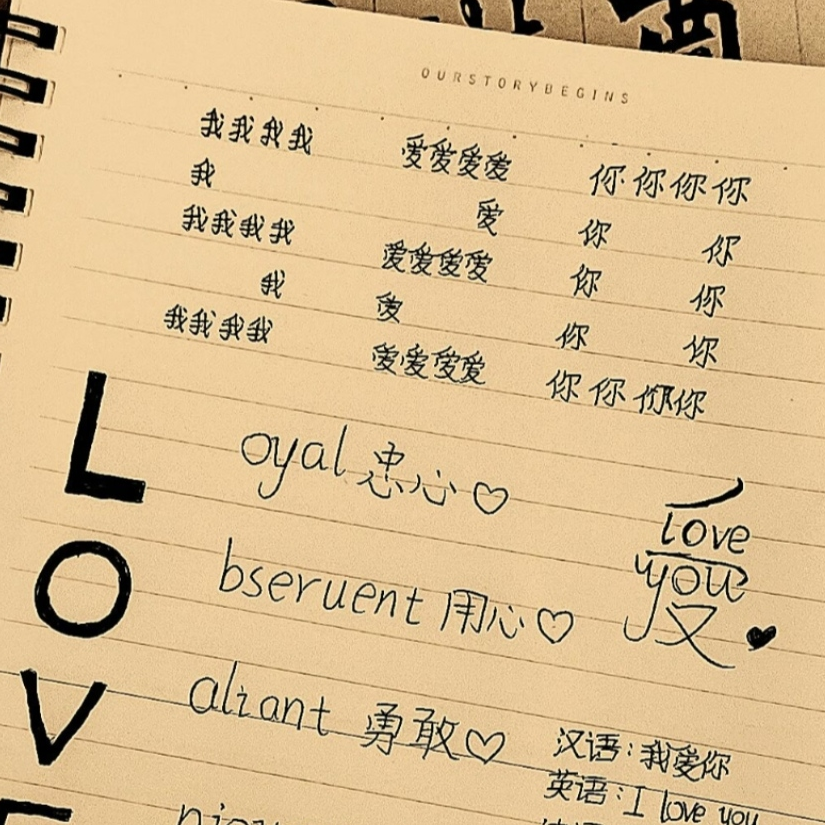 OURSTORYBEGINS
我我我我 爱爱爱爱 你你你你
我 爱 你 你
我我我我 爱爱爱爱 你 你
我 爱 你 你
我我我我 爱爱爱爱 你你你你
L oyal 忠心♡
love
you
O bseruent 用心♡
V aliant 勇敢♡
汉语:我爱你
英语:I love you